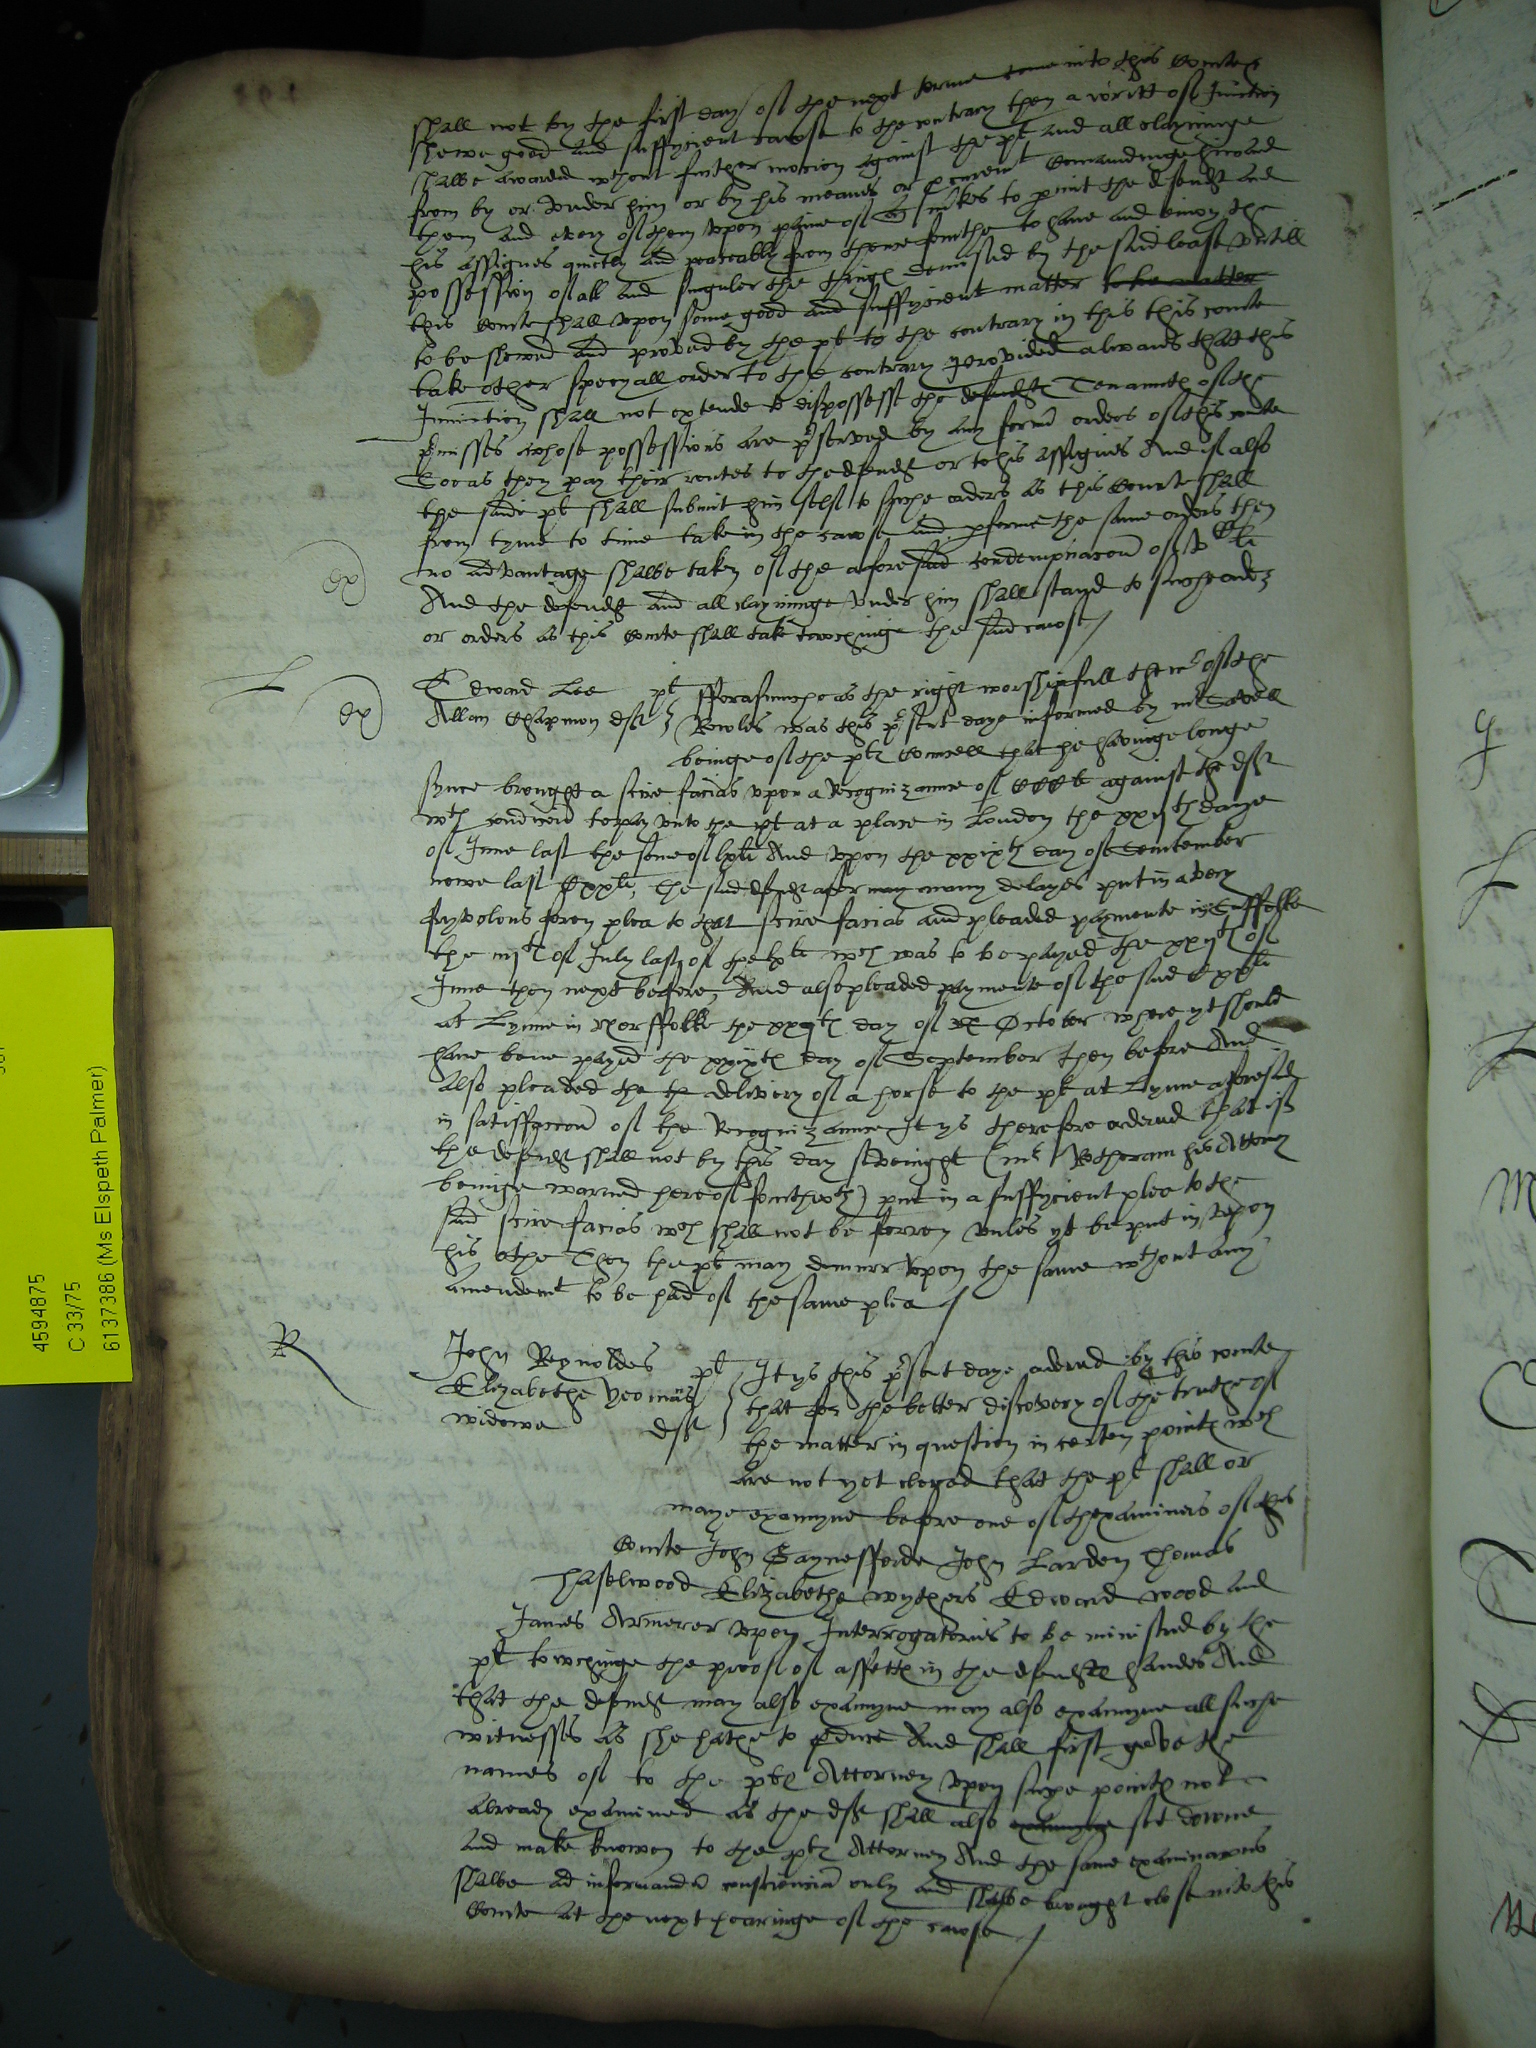 shall not by the first day of the next terme come into this Courte &
shewe good and suffycient cawse to the contrary then a writt of Iniunction
shalbe awarded wthout further mocion against the plt and all clayminge
from by or vnder him or by his meanes or procuremt Comaundinge him and
them and every of them vpon payne of to permit the defendt and
his assignes quietly and peaceably from thencefourthe to have and enioy the
possession of all and singuler the things demised by the said lease vntill
this Courte shall vpon some good and suffycient matter to be matter
to be shewed and proved by the plt to the contrary in this this courte
take other specyall order to the contrary Provided alwaies that this
Iniunction shall not extende to dispossesse the defendts Tenaunts of the
premisses whose possessions are preserved by any former orders of this courte
Soe as they pay their rentes to the defendt or to his assignes And if also
the said plt shall submit him self to suche orders as this Courte shall
from tyme to time take in the cawse and performe the same orders then
no advantage shalbe taken of the aforesaid condempnacon of
And the defendt and all clayminge vnder him shall stand to suche order
or orders as this Courte shall take towchinge the said cawse /
ex
ex
Edward Lee plt
Allan Chapman deft
fforasmuche as the right worshipfull the mr of the
Rowles was this present daye informed by mr Savell
beinge of the plts Councell that he havinge longe
synce brought a scire facias vpon a Recognizaunce of against the deft
wth condicon to pay vnto the plt at a place in London the daye
of June last the some of lxli And vpon the xxixth day of September
nowe last the said defendt after many many delayes put in a very
fryvolous forren plea to that scire facias and pleaded paymente in Suffolke
the of July last of the lxli wch was to be payed the of
June then next before, And also pleaded paymente of the said
at Lynne in Norffolke the day of October where yt should
have bene payed the xxixth day of September then before And
also pleaded the delivery of a horse to the plt at Lynne aforesaid
in satisfaccon of the Recognizaunce It ys therefore ordered that if
the defendt shall not by this day sevenight (mr Rotheram his Attorney
beinge warned hereof fourthwth) put in a suffycient plea to the
said scire facias wch shall not be forren vnles yt be put in vpon
his othe Then the plt may demurr vpon the same wthout any
amendemt to be had of the same plea /
R
John Reynoldes plt
Elizabethe Yeomans
widowe deft
It ys this present daye ordered by this courte
that for the better discovery of the truthe of
the matter in question in certen points wch
are not yet cleered that the plt shall or
maye examyne before one of thexaminers of this
Courte John Gaynesforde John Larden Thomas
Haselwood Elizabethe wythers Edward wood and
James Armerer vpon Interrogatories to be ministred by the
plt towchinge the proof of assetts in the defendts handes And
that the defendt may also examyne may also examyne all suche
witnesses as she hathe to produce And shall first geve the
names of to the plts Attorney vpon suche points not
already examined as the deft shall also examyne set downe
and make knowen to the plts Attorney And the same examinacons
shalbe ad informandam conscienciam only and shalbe brought close into this
Courte at the next hearinge of the cawse /
4594875
C 33/75
6137386 (Ms Elspeth Palmer)